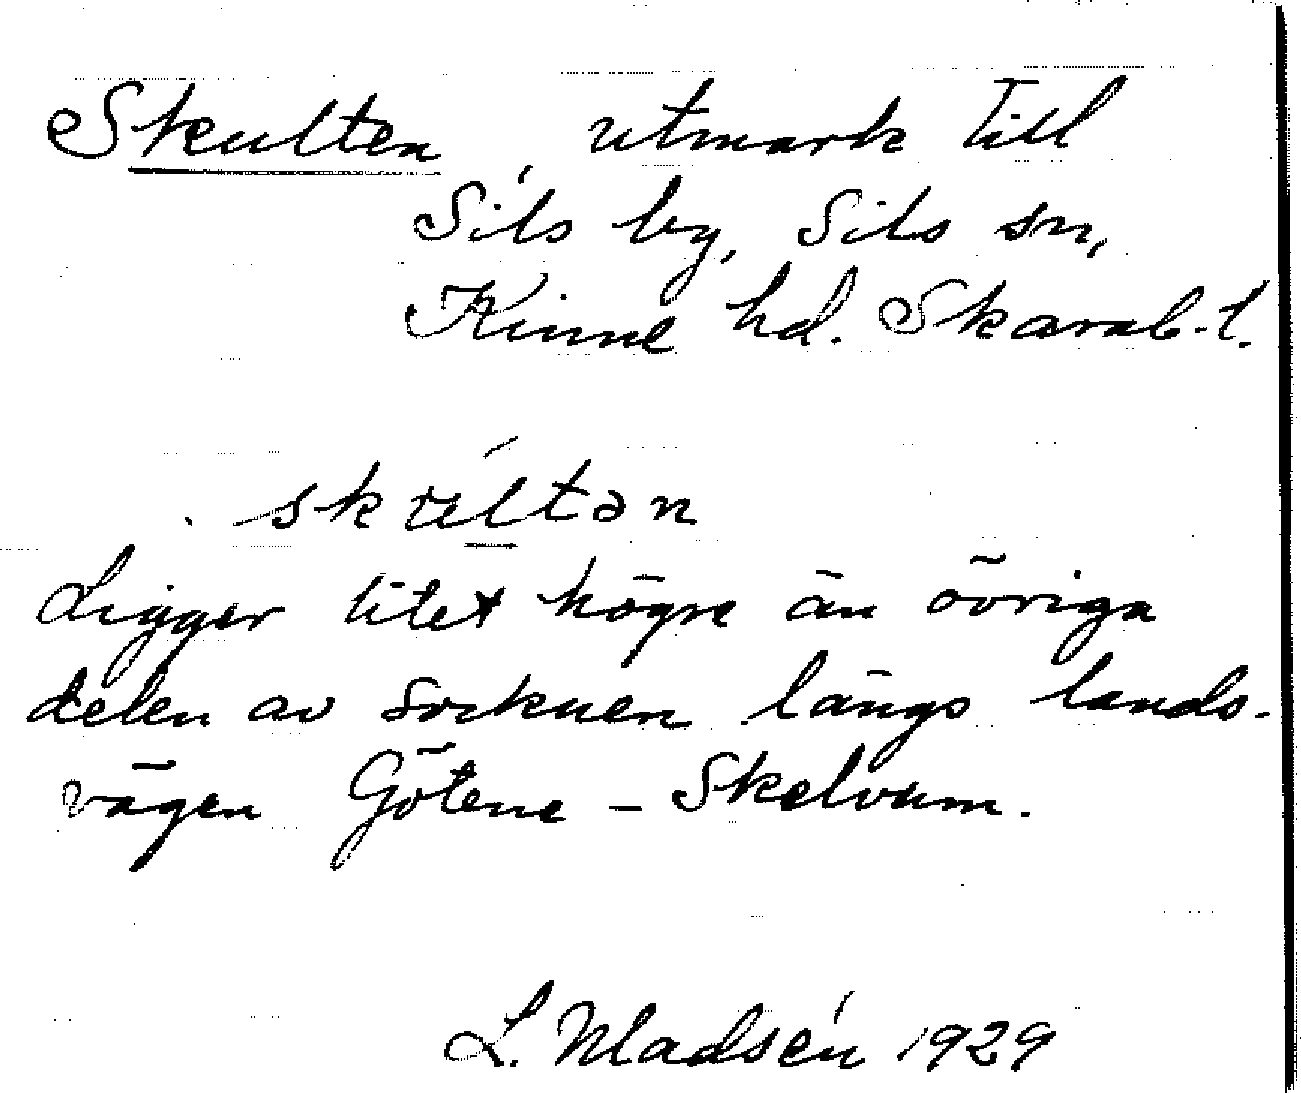 Skulten, utmark till
Sils by, Sils sn,
Kinne hd. Skarab.l.
skúltən
Ligger litet högre än övriga
delen av socknen längs lands-
vägen Götene – Skelvum.
L. Madsén 1929